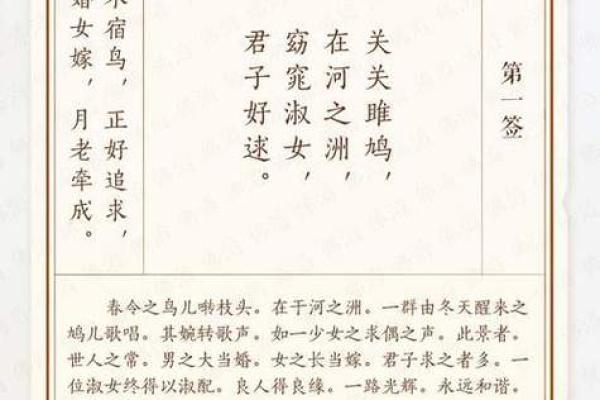 第一签
关关雎鸠，
在河之洲，
窈窕淑女，
君子好逑。
宿鸟，正好追求，
女嫁，月老牵成。
春令之鸟儿啭枝头。在于河之洲。一群由冬天醒来之
鸠儿歌唱。其婉转歌声。如一少女之求偶之声。此景者。
世人之常。男之大当婚。女之长当嫁。君子求之者多。一
位淑女终得以淑配。良人得良缘。一路光辉。永远和谐。